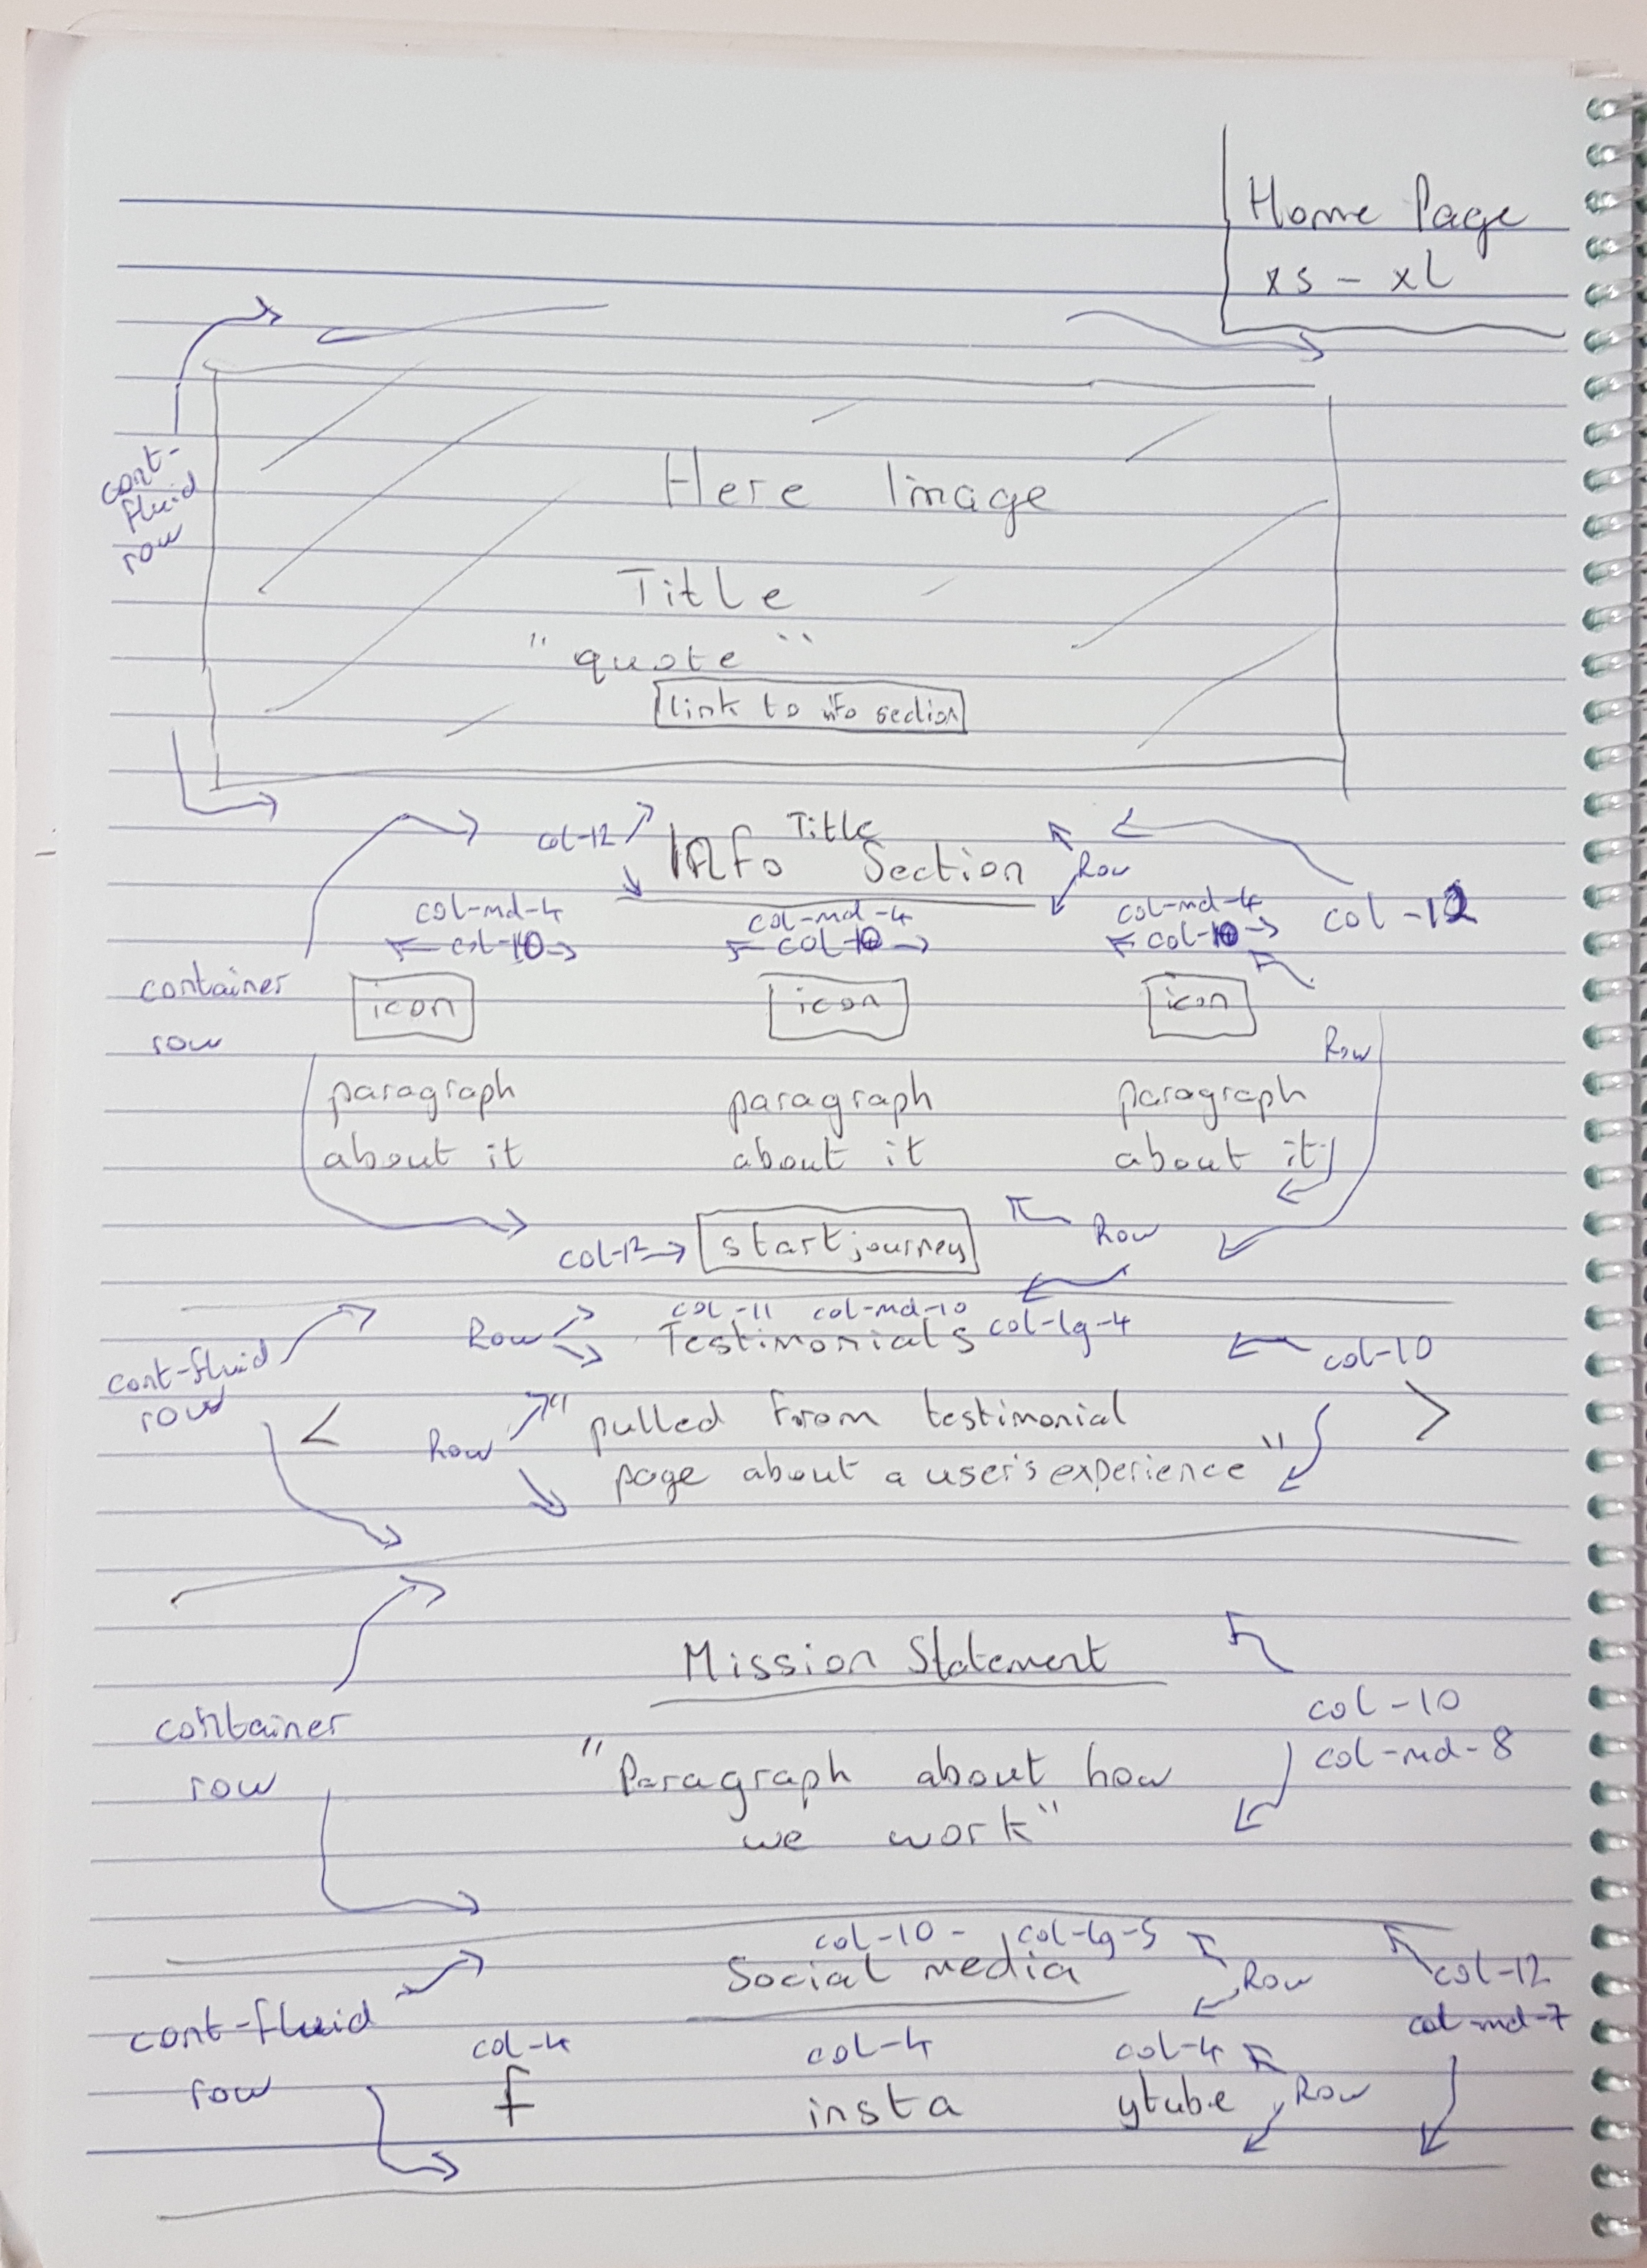 Home Page
xs - xl
cont-
fluid
row
Here Image
Title
"quote"
link to info section
col-12
Title
Info Section
Row
col-md-4
col-md-4
col-md-4
col-12
col-10
col-10
col-10
container
row
icon
icon
icon
Row
paragraph
about it
paragraph
about it
paragraph
about it
col-12
start journey
Row
col-11 col-md-10
Row
Testimonials
col-lg-4
col-10
cont-fluid
row
<
Row
"pulled from testimonial
page about a user's experience"
>
Mission Statement
container
row
col-10
col-md-8
"Paragraph about how
we work"
col-10 - col-lg-5
Social media
Row
col-12
col-md-7
cont-fluid
row
col-4
col-4
col-4
f
insta
ytube
Row